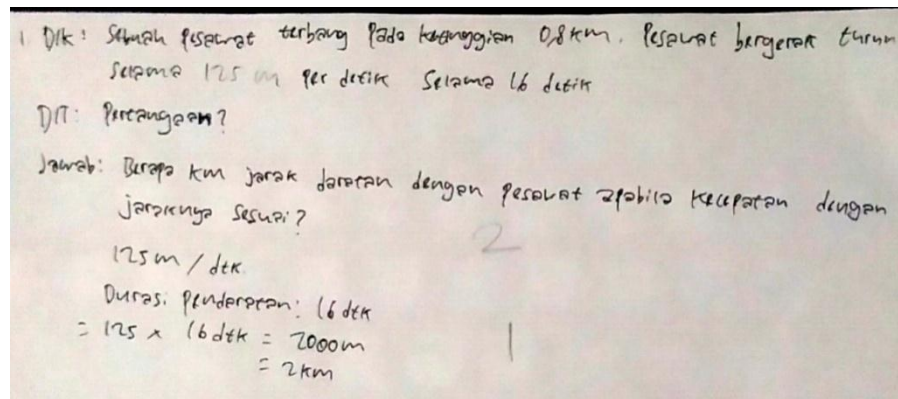 1. Dik: Sebuah pesawat terbang pada ketinggian 0,8 km. Pesawat bergerak turun
selama 125 m per detik selama 16 detik
DIT: Pertangaan?
Jawab: Berapa km jarak daratan dengan pesawat apabila kecepatan dengan
jaraknya sesuai?
2
125 m / dtk
Durasi pendaratan: 16 dtk
= 125 x 16 dtk = 2000 m
1
= 2 km